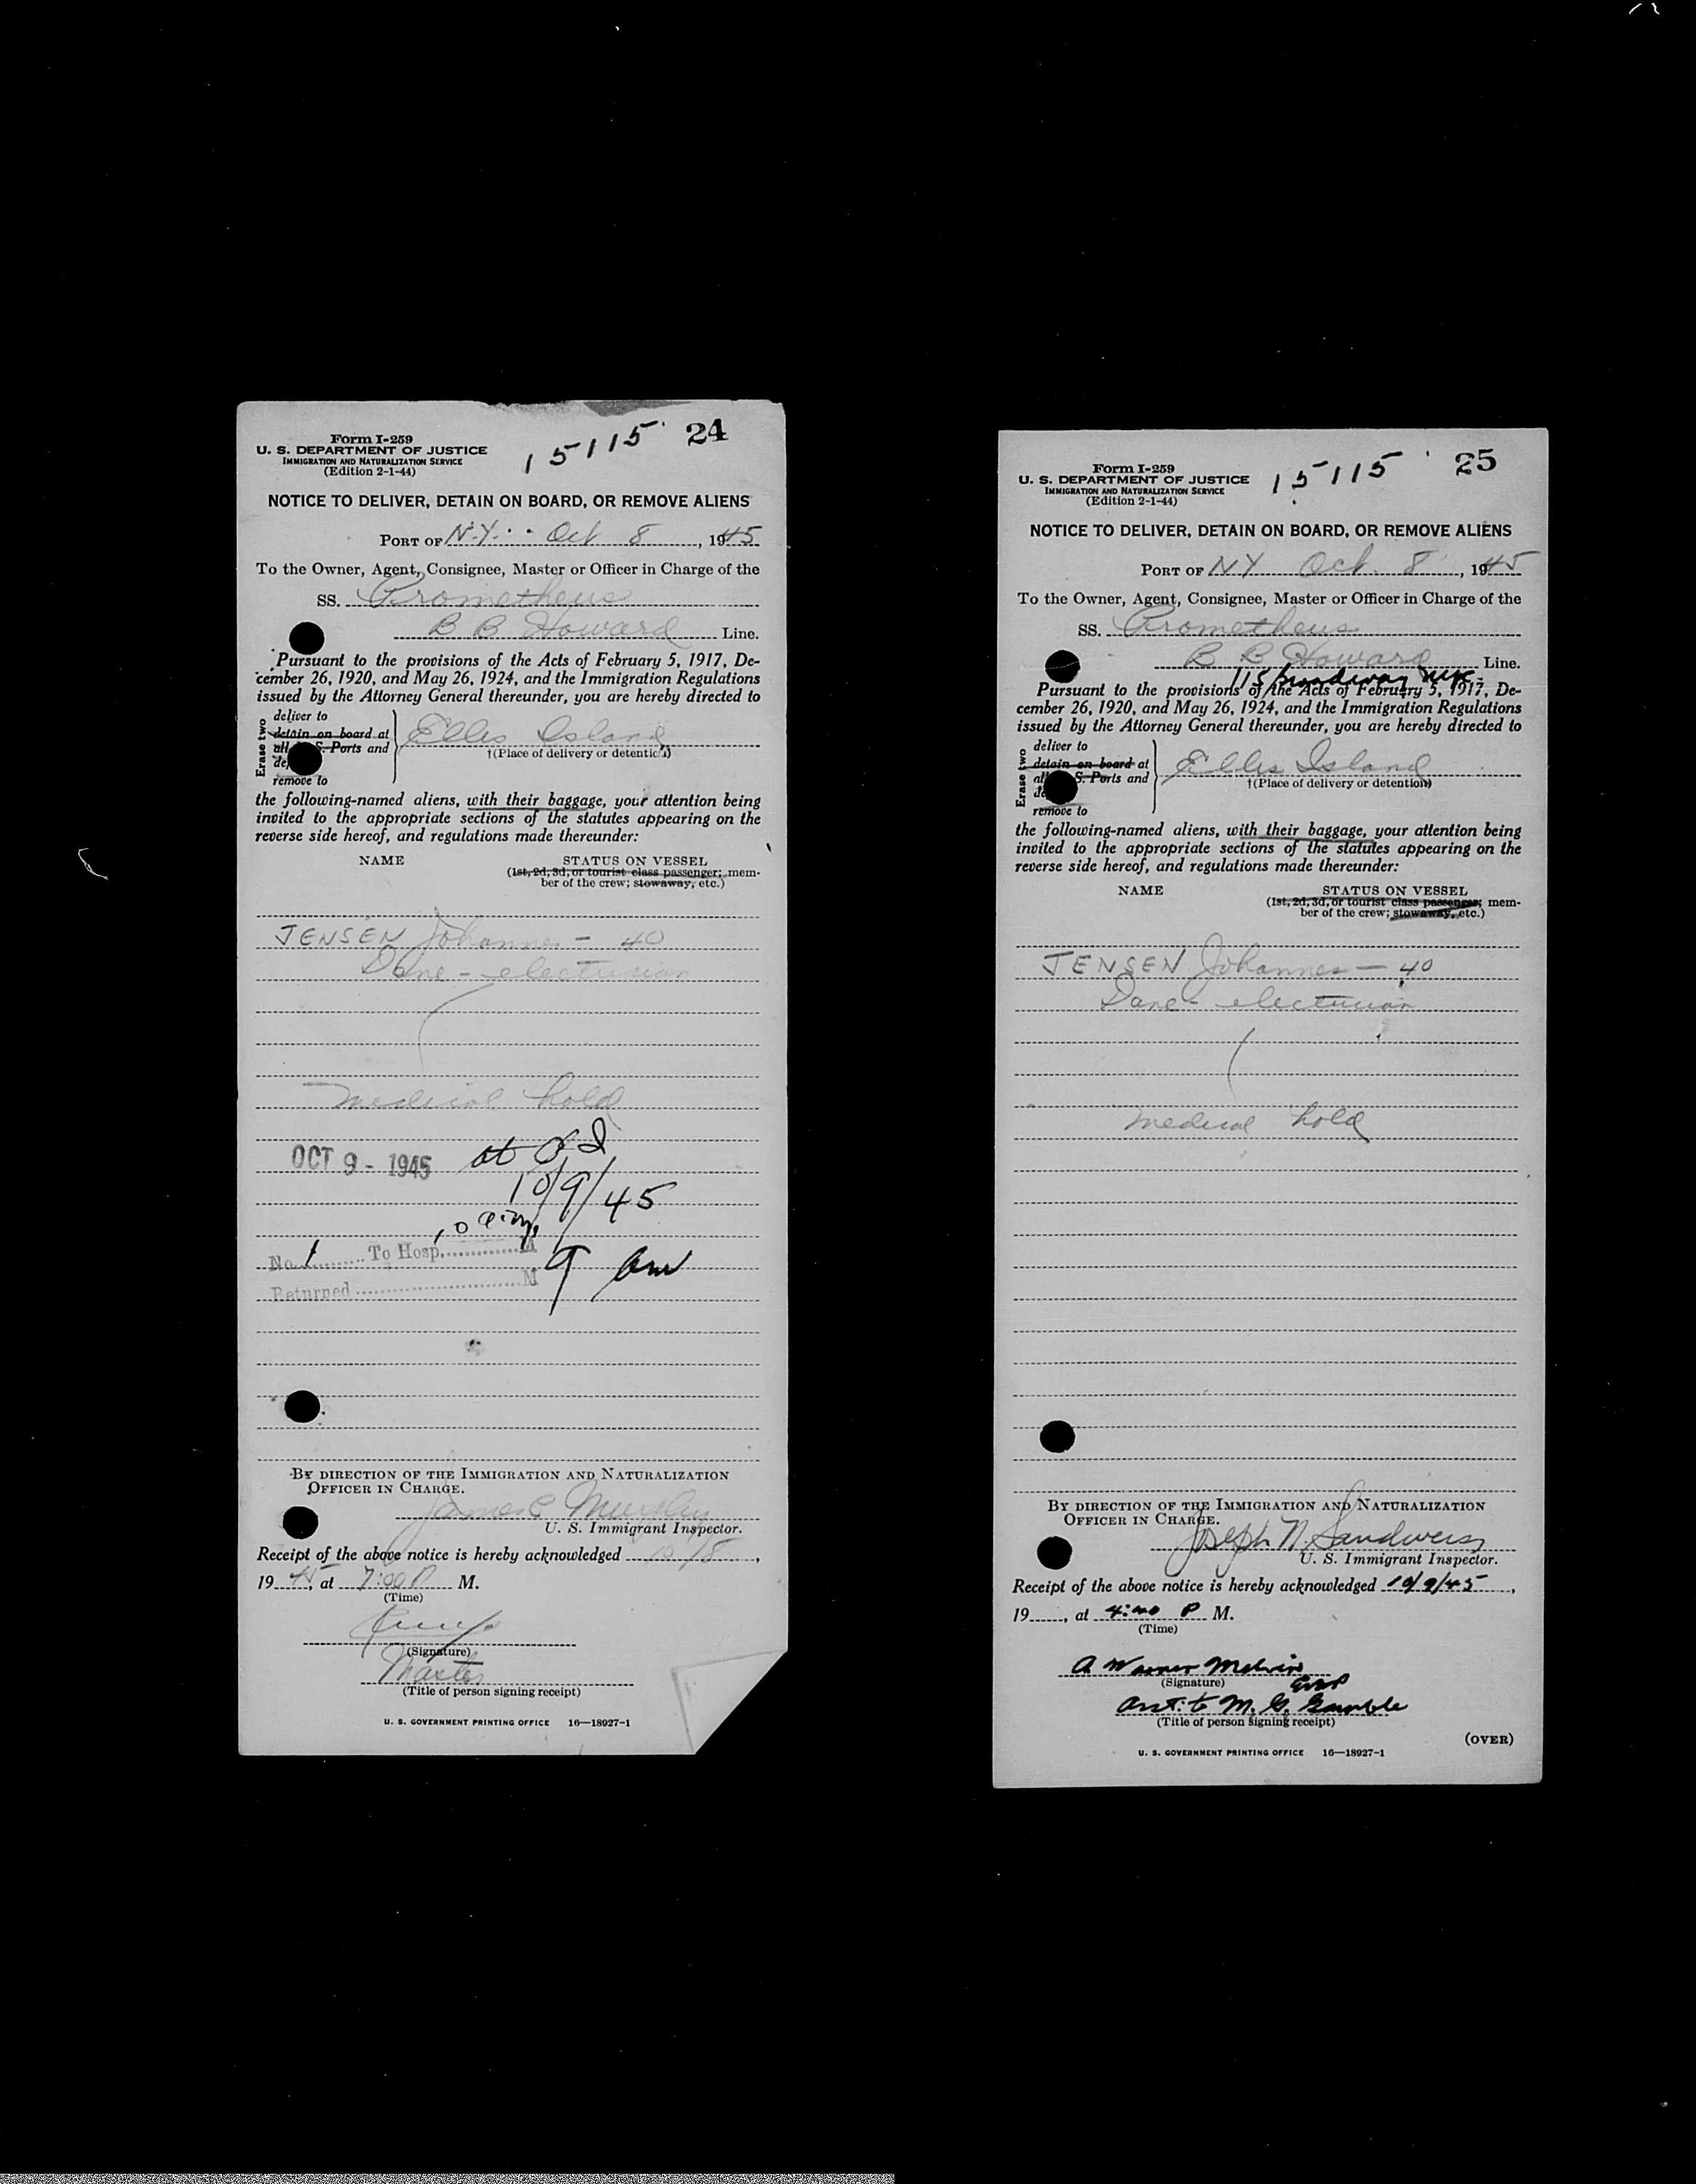 Form I-259
U. S. DEPARTMENT OF JUSTICE
IMMIGRATION AND NATURALIZATION SERVICE
(Edition 2-1-44)
15115 24
NOTICE TO DELIVER, DETAIN ON BOARD, OR REMOVE ALIENS
PORT OF N.Y. Oct 8, 1945
To the Owner, Agent, Consignee, Master or Officer in Charge of the
SS. Prometheus
B B Howard Line.
Pursuant to the provisions of the Acts of February 5, 1917, De-
cember 26, 1920, and May 26, 1924, and the Immigration Regulations
issued by the Attorney General thereunder, you are hereby directed to
Erase two
deliver to
detain on board at
all S. Ports and
de
remove to
Ellis Island
†(Place of delivery or detention)
the following-named aliens, with their baggage, your attention being
invited to the appropriate sections of the statutes appearing on the
reverse side hereof, and regulations made thereunder:
NAME STATUS ON VESSEL
(1st, 2d, 3d, or tourist class passenger; mem-
ber of the crew; stowaway, etc.)
JENSEN Johannes - 40
Dane - electrician
medical hold
OCT 9 - 1945 at
10/9/45
No. 1 To Hosp. M 9 am
Returned M
BY DIRECTION OF THE IMMIGRATION AND NATURALIZATION
OFFICER IN CHARGE.
James C Murphy
U. S. Immigrant Inspector.
Receipt of the above notice is hereby acknowledged 10/8,
19 45, at 7:00 P M.
(Time)
(Signature)
Master
(Title of person signing receipt)
U. S. GOVERNMENT PRINTING OFFICE 16—18927-1
Form I-259
U. S. DEPARTMENT OF JUSTICE
IMMIGRATION AND NATURALIZATION SERVICE
(Edition 2-1-44)
15115 25
NOTICE TO DELIVER, DETAIN ON BOARD, OR REMOVE ALIENS
PORT OF NY Oct. 8, 1945
To the Owner, Agent, Consignee, Master or Officer in Charge of the
SS. Prometheus
B B Howard Line.
115 Broadway NYC.
Pursuant to the provisions of the Acts of February 5, 1917, De-
cember 26, 1920, and May 26, 1924, and the Immigration Regulations
issued by the Attorney General thereunder, you are hereby directed to
Erase two
deliver to
detain on board at
all S. Ports and
de
remove to
Ellis Island
†(Place of delivery or detention)
the following-named aliens, with their baggage, your attention being
invited to the appropriate sections of the statutes appearing on the
reverse side hereof, and regulations made thereunder:
NAME STATUS ON VESSEL
(1st, 2d, 3d, or tourist class passenger; mem-
ber of the crew; stowaway, etc.)
JENSEN Johannes - 40
Dane - electrician
medical hold
BY DIRECTION OF THE IMMIGRATION AND NATURALIZATION
OFFICER IN CHARGE.
Joseph N. Sandweiss
U. S. Immigrant Inspector.
Receipt of the above notice is hereby acknowledged 10/9/45,
19, at 4:40 P M.
(Time)
A Warner Melvin
(Signature)
Asst. to M. G. Gamble
(Title of person signing receipt)
(OVER)
U. S. GOVERNMENT PRINTING OFFICE 16—18927-1